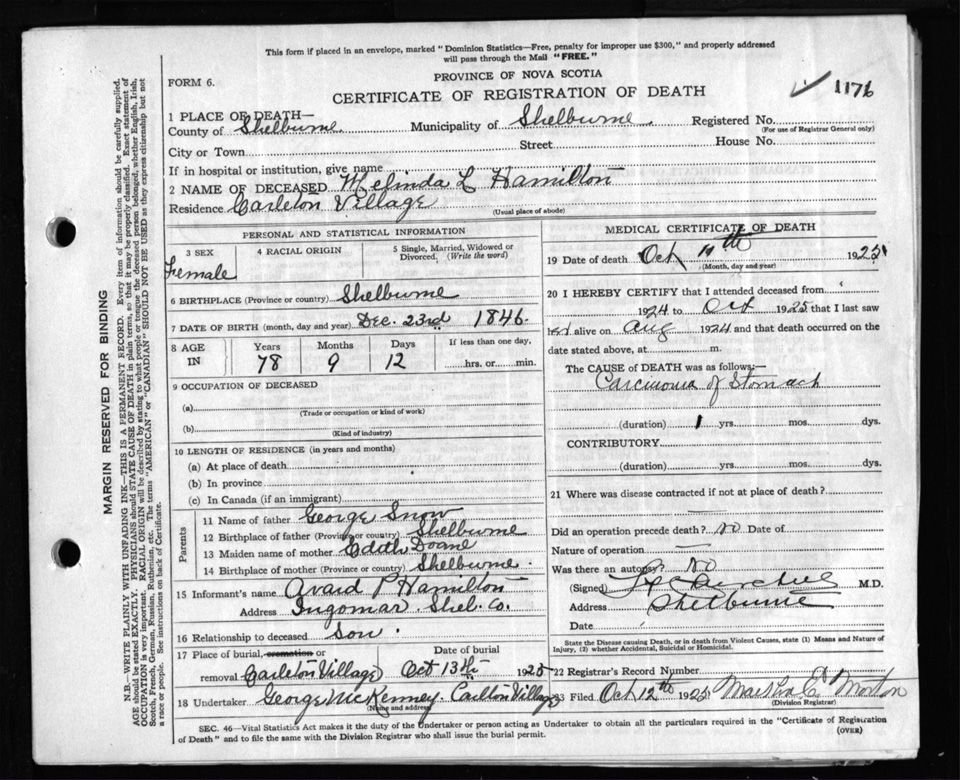 This form if placed in an envelope, marked "Dominion Statistics—Free, penalty for improper use $300," and properly addressed
will pass through the Mail "FREE."
PROVINCE OF NOVA SCOTIA
FORM 6.
CERTIFICATE OF REGISTRATION OF DEATH
1176
1 PLACE OF DEATH—
County of Shelburne Municipality of Shelburne Registered No.
(For use of Registrar General only)
City or Town Street House No.
If in hospital or institution, give name
2 NAME OF DECEASED Melinda L Hamilton
Residence Carleton Village
(Usual place of abode)
PERSONAL AND STATISTICAL INFORMATION
3 SEX
Female
4 RACIAL ORIGIN
5 Single, Married, Widowed or
Divorced. (Write the word)
6 BIRTHPLACE (Province or country) Shelburne
7 DATE OF BIRTH (month, day and year) Dec. 23rd 1846.
8 AGE
IN
Years
78
Months
9
Days
12
If less than one day,
hrs. or min.
9 OCCUPATION OF DECEASED
(a)
(Trade or occupation or kind of work)
(b)
(Kind of industry)
10 LENGTH OF RESIDENCE (in years and months)
(a) At place of death
(b) In province
(c) In Canada (if an immigrant)
Parents
11 Name of father George Snow
12 Birthplace of father (Province or country) Shelburne
13 Maiden name of mother Edith Doane
14 Birthplace of mother (Province or country) Shelburne.
15 Informant's name Avard P Hamilton
Address Ingomar. Shel. Co.
16 Relationship to deceased Son.
17 Place of burial, cremation or
removal Carleton Village
Date of burial
Oct 13th 1925
18 Undertaker George McKenney. Carlton Village
(Name and address)
MEDICAL CERTIFICATE OF DEATH
19 Date of death Oct 11th 1925
(Month, day and year)
20 I HEREBY CERTIFY that I attended deceased from
1924 to Oct 1925 that I last saw
her alive on Aug 1924 and that death occurred on the
date stated above, at m.
The CAUSE of DEATH was as follows:—
Carcinoma of Stomach
(duration) 1 yrs. mos. dys.
CONTRIBUTORY
(duration) yrs. mos. dys.
21 Where was disease contracted if not at place of death?
Did an operation precede death? No Date of
Nature of operation —
Was there an autopsy? No
(Signed) M.D.
Address Shelburne
Date
State the Disease causing Death, or in death from Violent Causes, state (1) Means and Nature of
Injury, (2) whether Accidental, Suicidal or Homicidal.
22 Registrar's Record Number
23 Filed Oct 12th 1925 Morton
(Division Registrar)
SEC. 46—Vital Statistics Act makes it the duty of the Undertaker or person acting as Undertaker to obtain all the particulars required in the "Certificate of Registration
of Death" and to file the same with the Division Registrar who shall issue the burial permit.
(OVER)
MARGIN RESERVED FOR BINDING
N.B.—WRITE PLAINLY WITH UNFADING INK—THIS IS A PERMANENT RECORD. Every item of information should be carefully supplied.
AGE should be stated EXACTLY. PHYSICIANS should STATE CAUSE OF DEATH in plain terms, so that it may be properly classified. Exact statement of
OCCUPATION is very important. RACIAL ORIGIN will be described by stating to what people or tongue the deceased person belonged, whether English, Irish,
Scotch, French, German, Russian, Ruthenian, etc. The terms "AMERICAN" or "CANADIAN" SHOULD NOT BE USED as they express citizenship but not
a race or people. See instructions on back of Certificate.